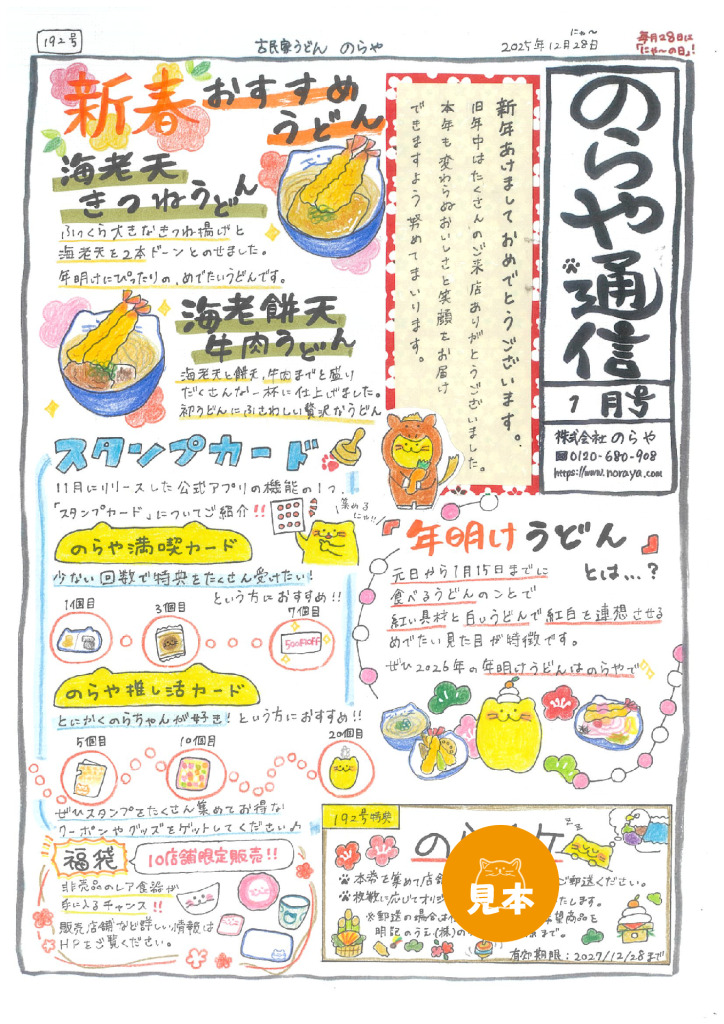 192号
古民家うどん のらや
にゃ〜
2025年12月28日
毎月28日は
「にゃ〜の日」!
のらや通信
1月号
株式会社 のらや
0120-680-908
https://www.noraya.com
新年あけましておめでとうございます。
旧年中はたくさんのご来店ありがとうございました。
本年も変わらぬおいしさと笑顔をお届け
できますよう努めてまいります。
新春おすすめ
うどん
海老天
きつねうどん
ふっくら大きなきつね揚げと
海老天を2本ドーンとのせました。
年明けにぴったりの、めでたいうどんです。
海老餅天
牛肉うどん
海老天と餅天、牛肉までと盛り
だくさんな一杯に仕上げました。
初うどんにふさわしい贅沢なうどん
スタンプカード
11月にリリースした公式アプリの機能の1つ、
「スタンプカード」についてご紹介!!
集める
にゃ!!
のらや満喫カード
少ない回数で特典をたくさん受けたい!
という方におすすめ!!
1個目
3個目
7個目
500円OFF
のらや推し活カード
とにかくのらちゃんが好き!という方におすすめ!!
5個目
10個目
20個目
ぜひスタンプをたくさん集めてお得な
クーポンやグッズをゲットしてください♪
福袋
10店舗限定販売!!
非売品のレア食器が
手に入るチャンス!!
販売店舗など詳しい情報は
HPをご覧ください。
『年明けうどん』
とは…?
元日から1月15日までに
食べるうどんのことで
紅い具材と白いうどんで紅白を連想させる
めでたい見た目が特徴です。
ぜひ2026年の年明けうどんはのらやで
192号特典
のら
ケ
zz
本券を集めて店
ご郵送ください。
枚数に応じてオリジ
たします。
※郵送の場合は
希望商品を
明記のうえ(株)の
まで。
見本
有効期限:2027/12/28まで